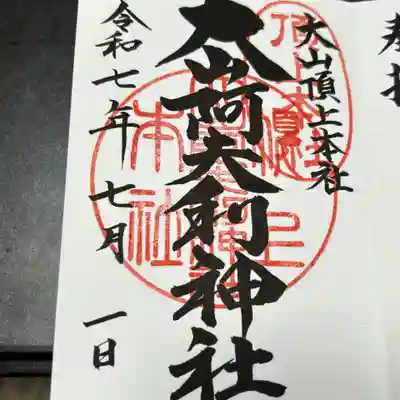 奉拝
大山頂上本社
大山阿夫利神社
令和七年 七月 一日